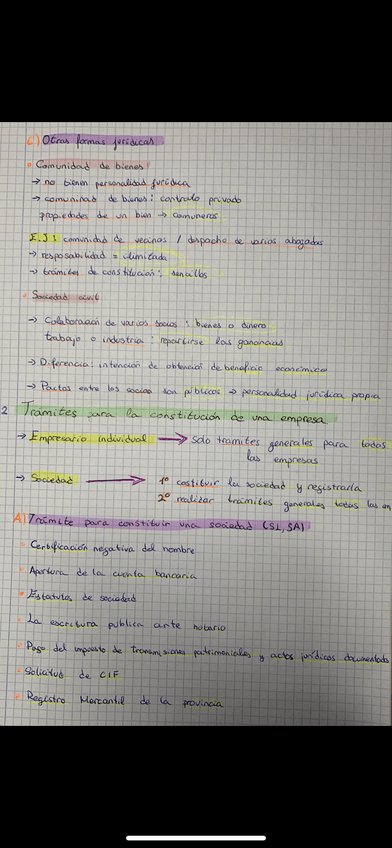 C) Otras formas jurídicas
• Comunidad de bienes
→ no tienen personalidad jurídica
→ comuninas de bienes: contrato privado
propiedades de un bien → comuneros
EJ: comunidad de vecinos / despacho de varios abogados
→ resposabilidad = ilimitada
→ trámites de constitución: sencillos
• Sociedad civil
→ Colaboración de varios socios: bienes o dinero
trabajo o industria: repartirse las ganancias
→ Diferencia: intención de obtención de beneficio económico
→ Pactos entre los socios son públicos → personalidad jurídica propia
2 Tramites para la constitución de una empresa
→ Empresario individual → Solo tramites generales para todas
las empresas
→ Sociedad → 1º costituir la sociedad y registrarla
2º realizar trámites generales todas las em
A) Trámite para constituir una sociedad (SL, SA)
• Certificación negativa del nombre
• Apertura de la cuenta bancaria
• Estatutos de sociedad
• La escritura publica ante notario
• Pago del impuesto de transmisiones patrimoniales y actos jurídicos documentados
• Solicitud de CIF
• Registro Mercantil de la provincia